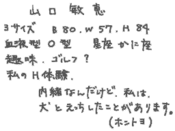 山口敏恵
3サイズ B80.W57.H84
血液型O型 星座かに座
趣味.ゴルフ?
私のH体験.
内緒なんだけど、私は、
犬とえっちしたことがあります。
(ホントヨ)